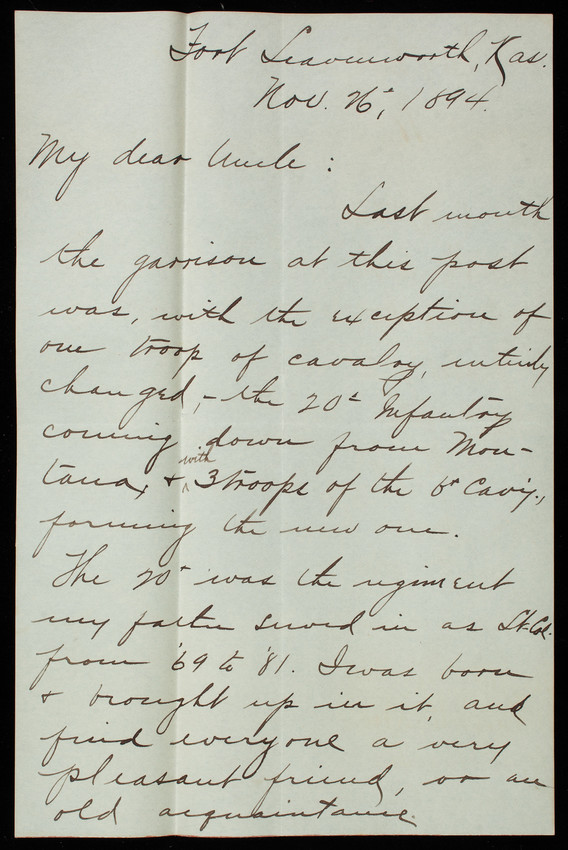 Fort Leavenworth, Kas.
Nov. 26th, 1894.
My dear Uncle :
Last month
the garrison at this post
was, with the exception of
one troop of cavalry, entirely
changed, - the 20th Infantry
coming down from Mon-
tana, & with 3 troops of the 6th Cav'y.,
forming the new one.
The 20th was the regiment
my father served in as Lt. Col.
from '69 to '81. I was born
& brought up in it, and
find everyone a very
pleasant friend, or an
old acquaintance.